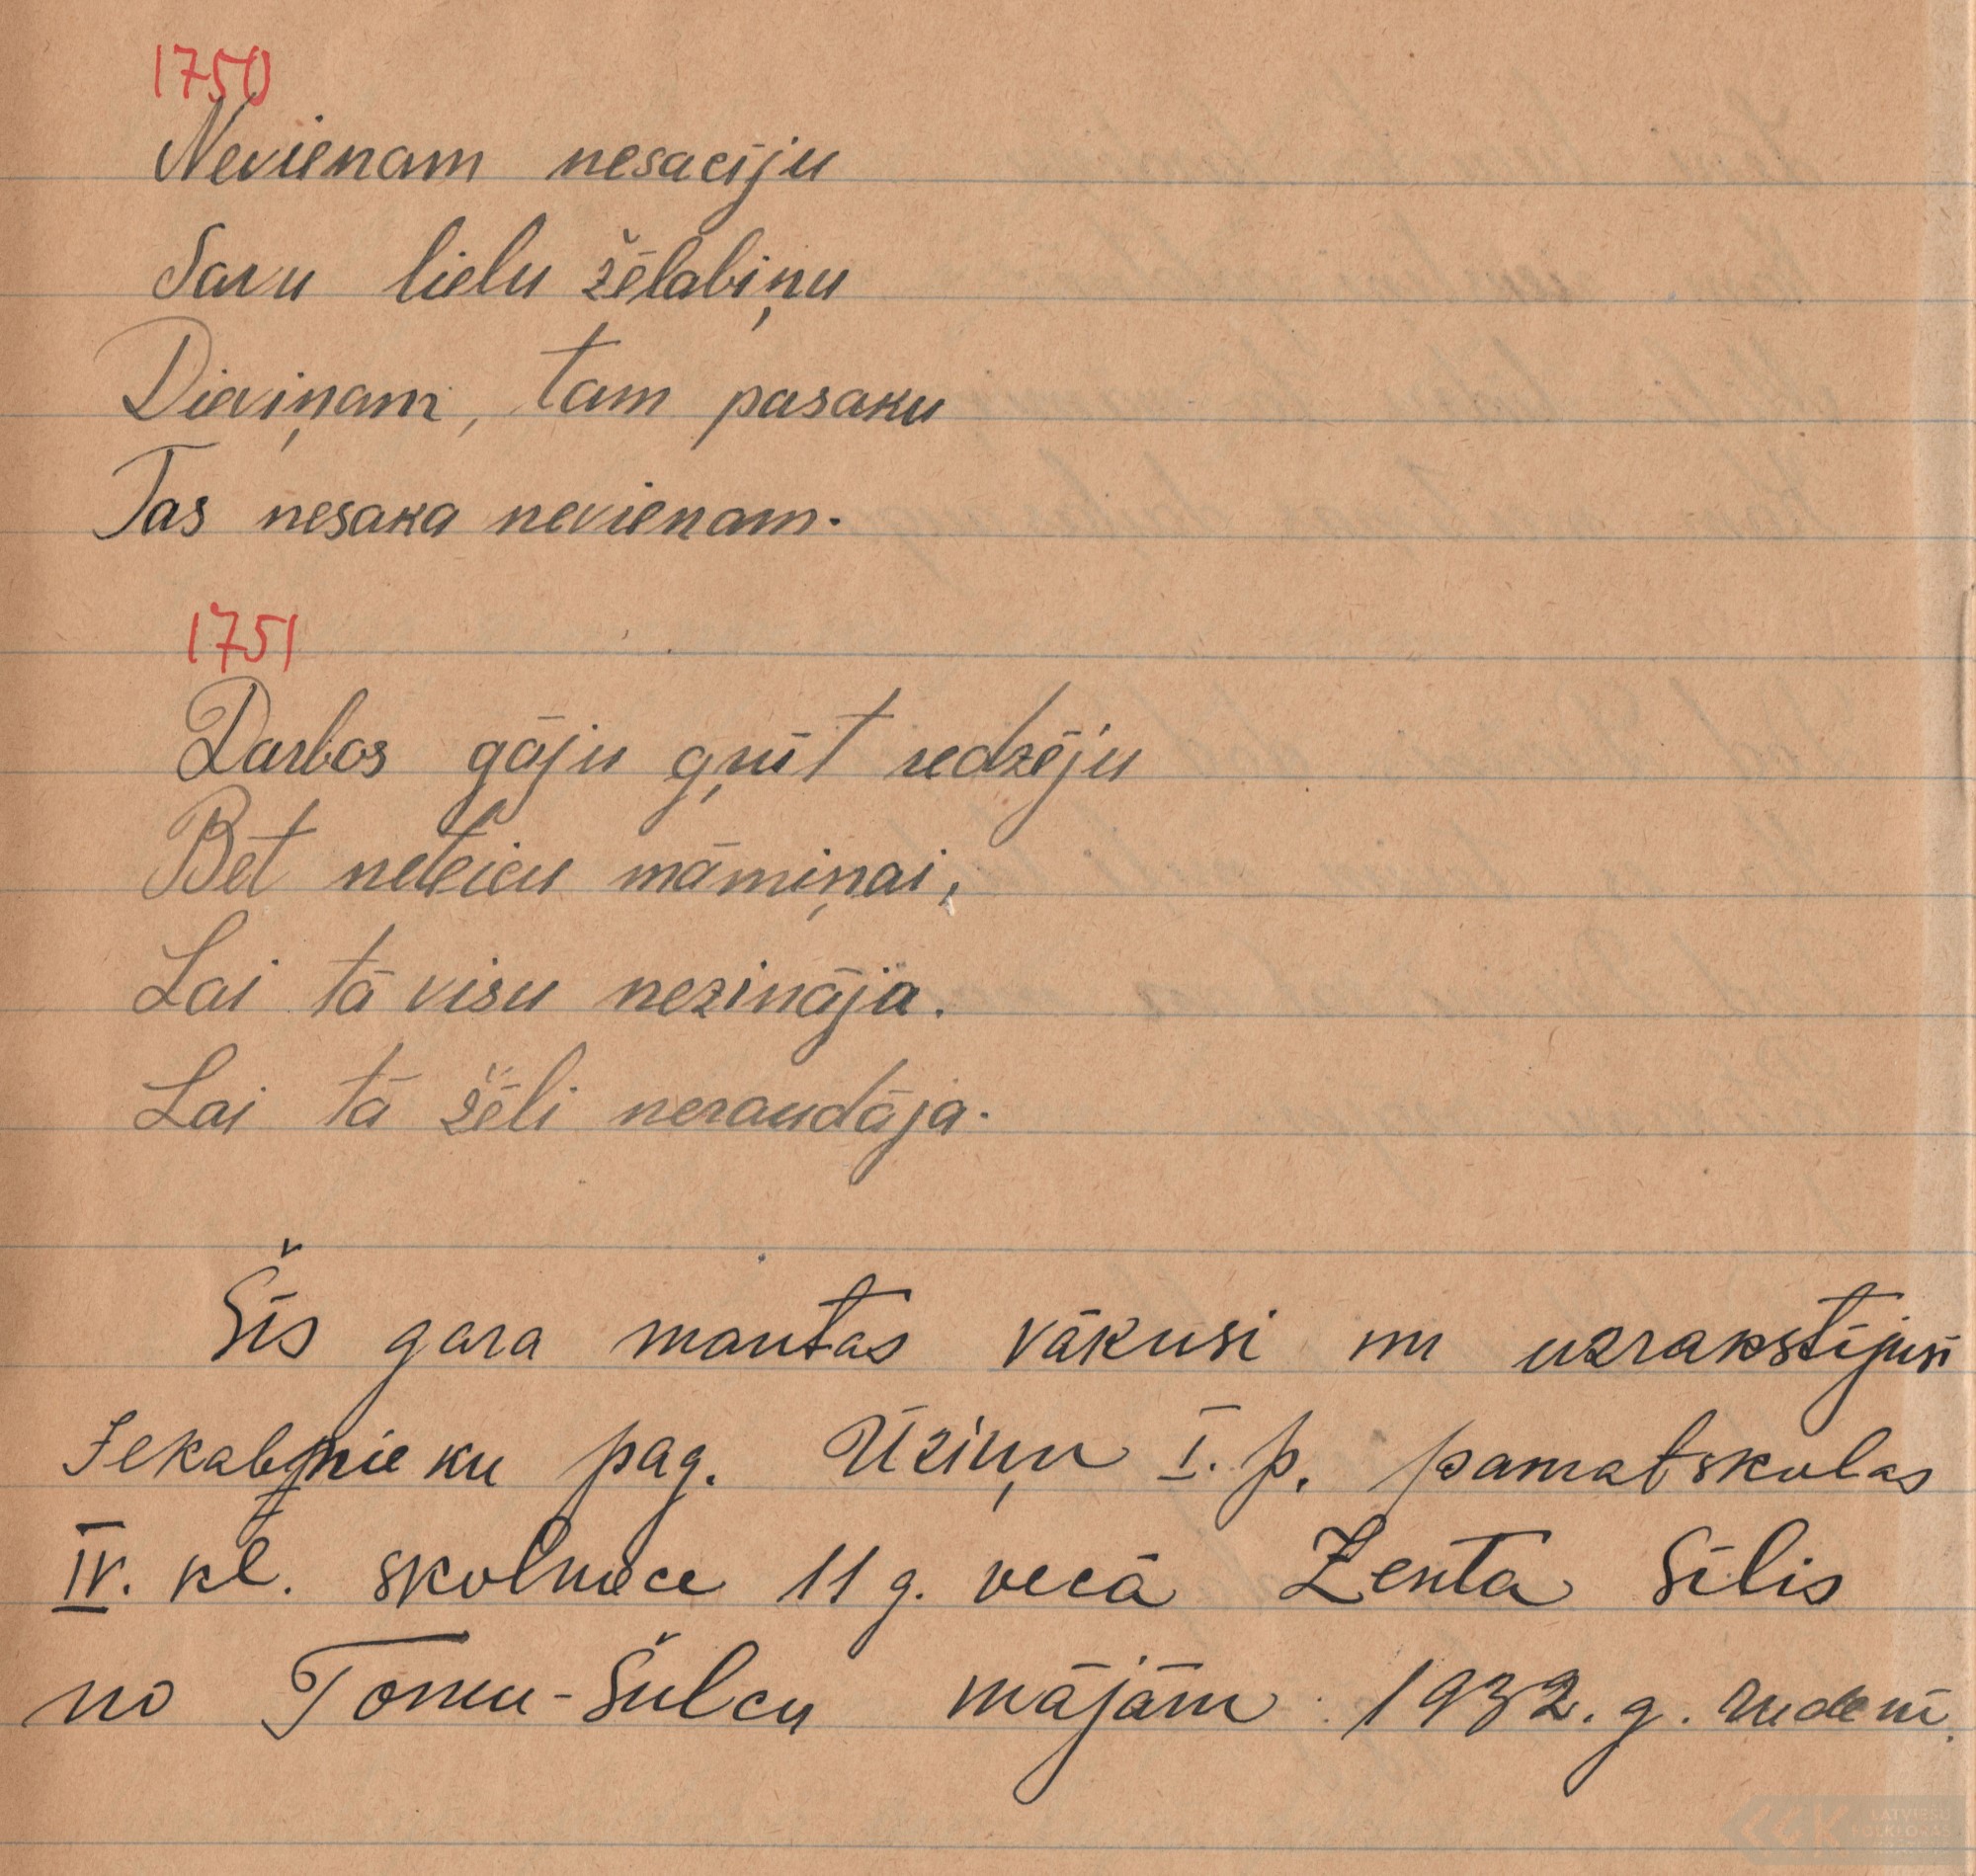 1750
Nevienam nesacīju
Savu lielu žēlabiņu
Dieviņam, tam pasaku
Tas nesaka nevienam.
1751
Darbos gāju gŗūt redzēju
Bet neteicu māmiņai,
Lai tā visu nezināja.
Lai tā žēli neraudāja.
Šīs gara mantas vākusi un uzrakstījusi
Jekabnieku pag. Ūziņu I. p. pamatskolas
IV. kl. skolniece 11 g. vecā Zenta Sīlis
no Tomu-Šulcu mājām 1932. g. rudenī.
LATVIEŠU
FOLKLORAS